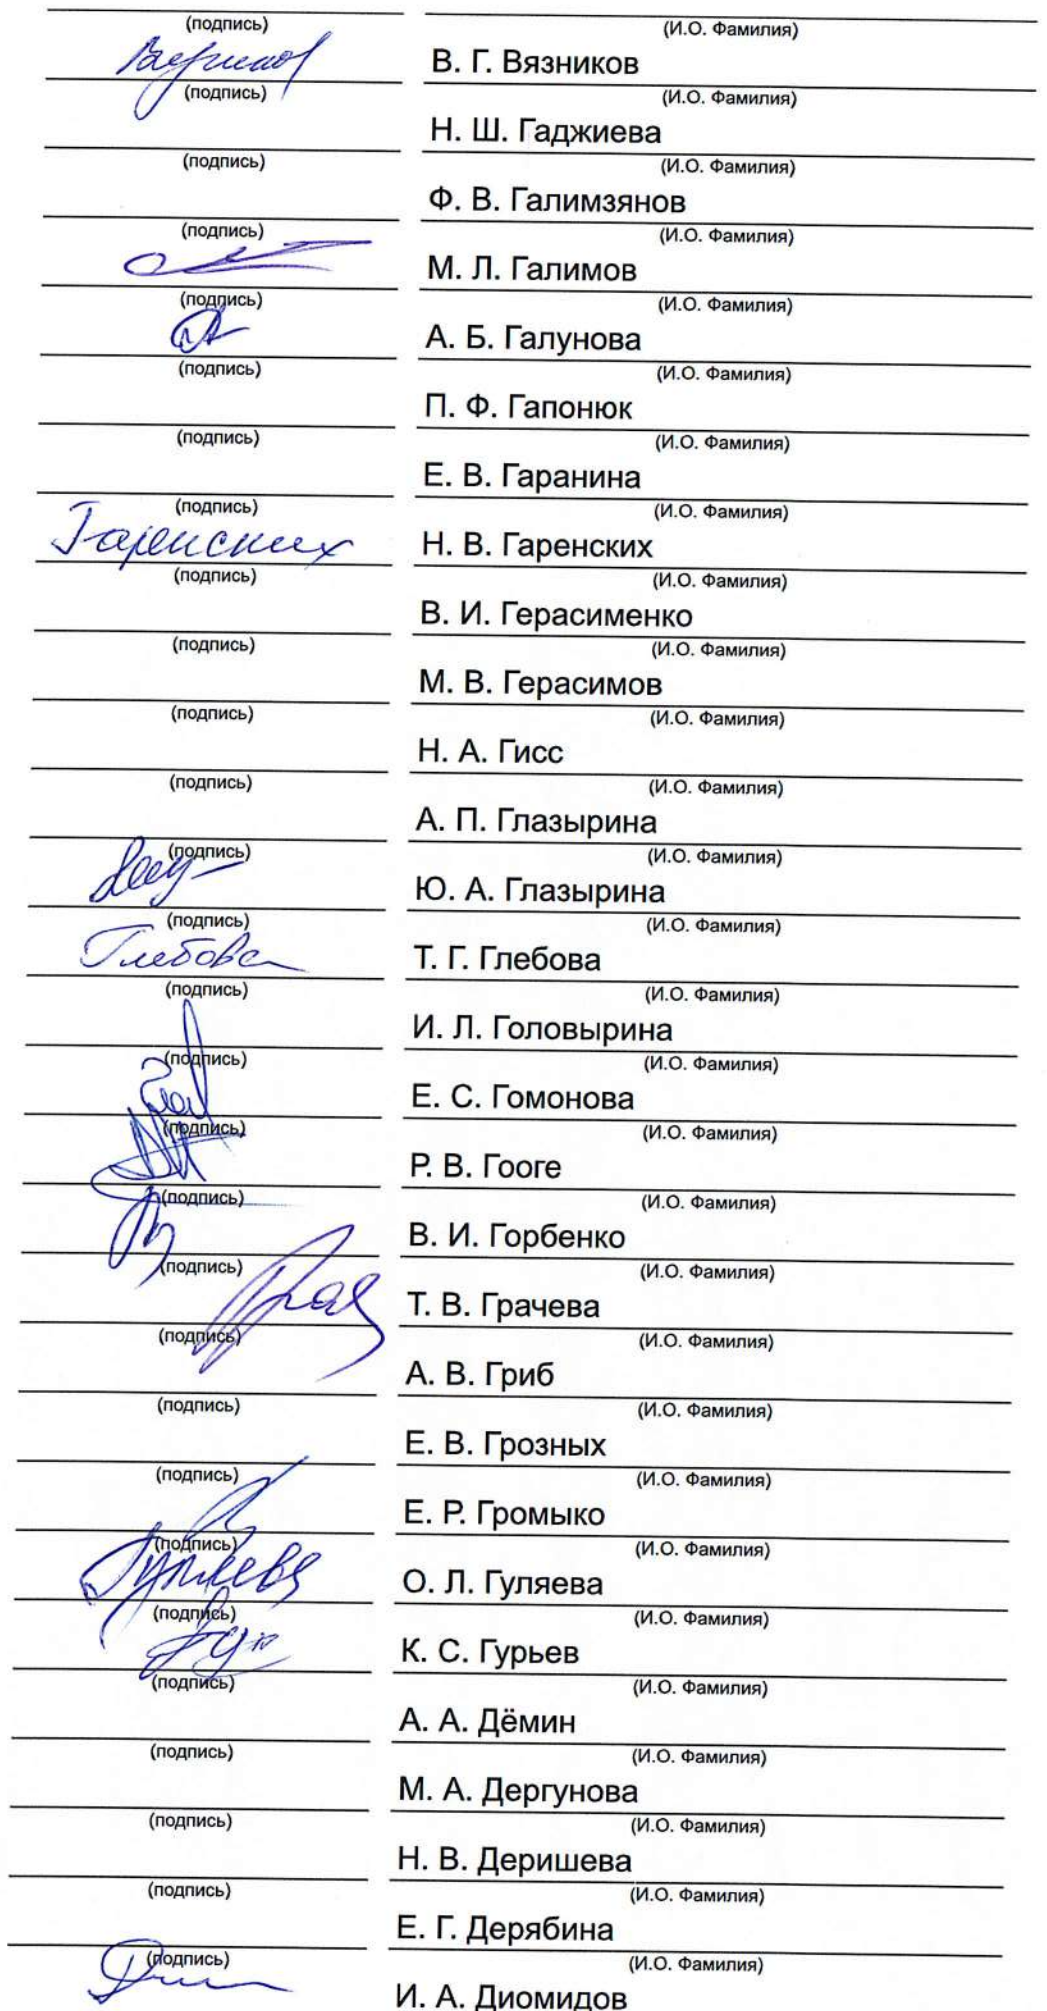 (подпись) (И.О. Фамилия)
В. Г. Вязников
(подпись) (И.О. Фамилия)
Н. Ш. Гаджиева
(подпись) (И.О. Фамилия)
Ф. В. Галимзянов
(подпись) (И.О. Фамилия)
М. Л. Галимов
(подпись) (И.О. Фамилия)
А. Б. Галунова
(подпись) (И.О. Фамилия)
П. Ф. Гапонюк
(подпись) (И.О. Фамилия)
Е. В. Гаранина
(подпись) (И.О. Фамилия)
Гаренских Н. В. Гаренских
(подпись) (И.О. Фамилия)
В. И. Герасименко
(подпись) (И.О. Фамилия)
М. В. Герасимов
(подпись) (И.О. Фамилия)
Н. А. Гисс
(подпись) (И.О. Фамилия)
А. П. Глазырина
(подпись) (И.О. Фамилия)
Ю. А. Глазырина
(подпись) (И.О. Фамилия)
Глебова Т. Г. Глебова
(подпись) (И.О. Фамилия)
И. Л. Головырина
(подпись) (И.О. Фамилия)
Е. С. Гомонова
(подпись) (И.О. Фамилия)
Р. В. Гооге
(подпись) (И.О. Фамилия)
В. И. Горбенко
(подпись) (И.О. Фамилия)
Т. В. Грачева
(подпись) (И.О. Фамилия)
А. В. Гриб
(подпись) (И.О. Фамилия)
Е. В. Грозных
(подпись) (И.О. Фамилия)
Е. Р. Громыко
(подпись) (И.О. Фамилия)
Гуляева О. Л. Гуляева
(подпись) (И.О. Фамилия)
К. С. Гурьев
(подпись) (И.О. Фамилия)
А. А. Дёмин
(подпись) (И.О. Фамилия)
М. А. Дергунова
(подпись) (И.О. Фамилия)
Н. В. Деришева
(подпись) (И.О. Фамилия)
Е. Г. Дерябина
(подпись) (И.О. Фамилия)
И. А. Диомидов